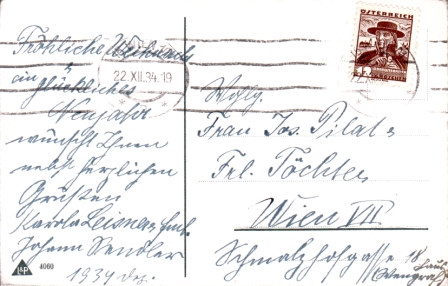 Fröhliche Weihnacht
ein glückliches
Neujahr
wünscht Ihnen
nebst herzlichen
Grüßen
Karola Leissner
Johann Wendler
1934 dez.
4060
22.XII.34.19
ÖSTERREICH
Wgbg.
Frau Jos. Pilat
Frl. Töchter
Wien VII
Schmalzhofgasse 18